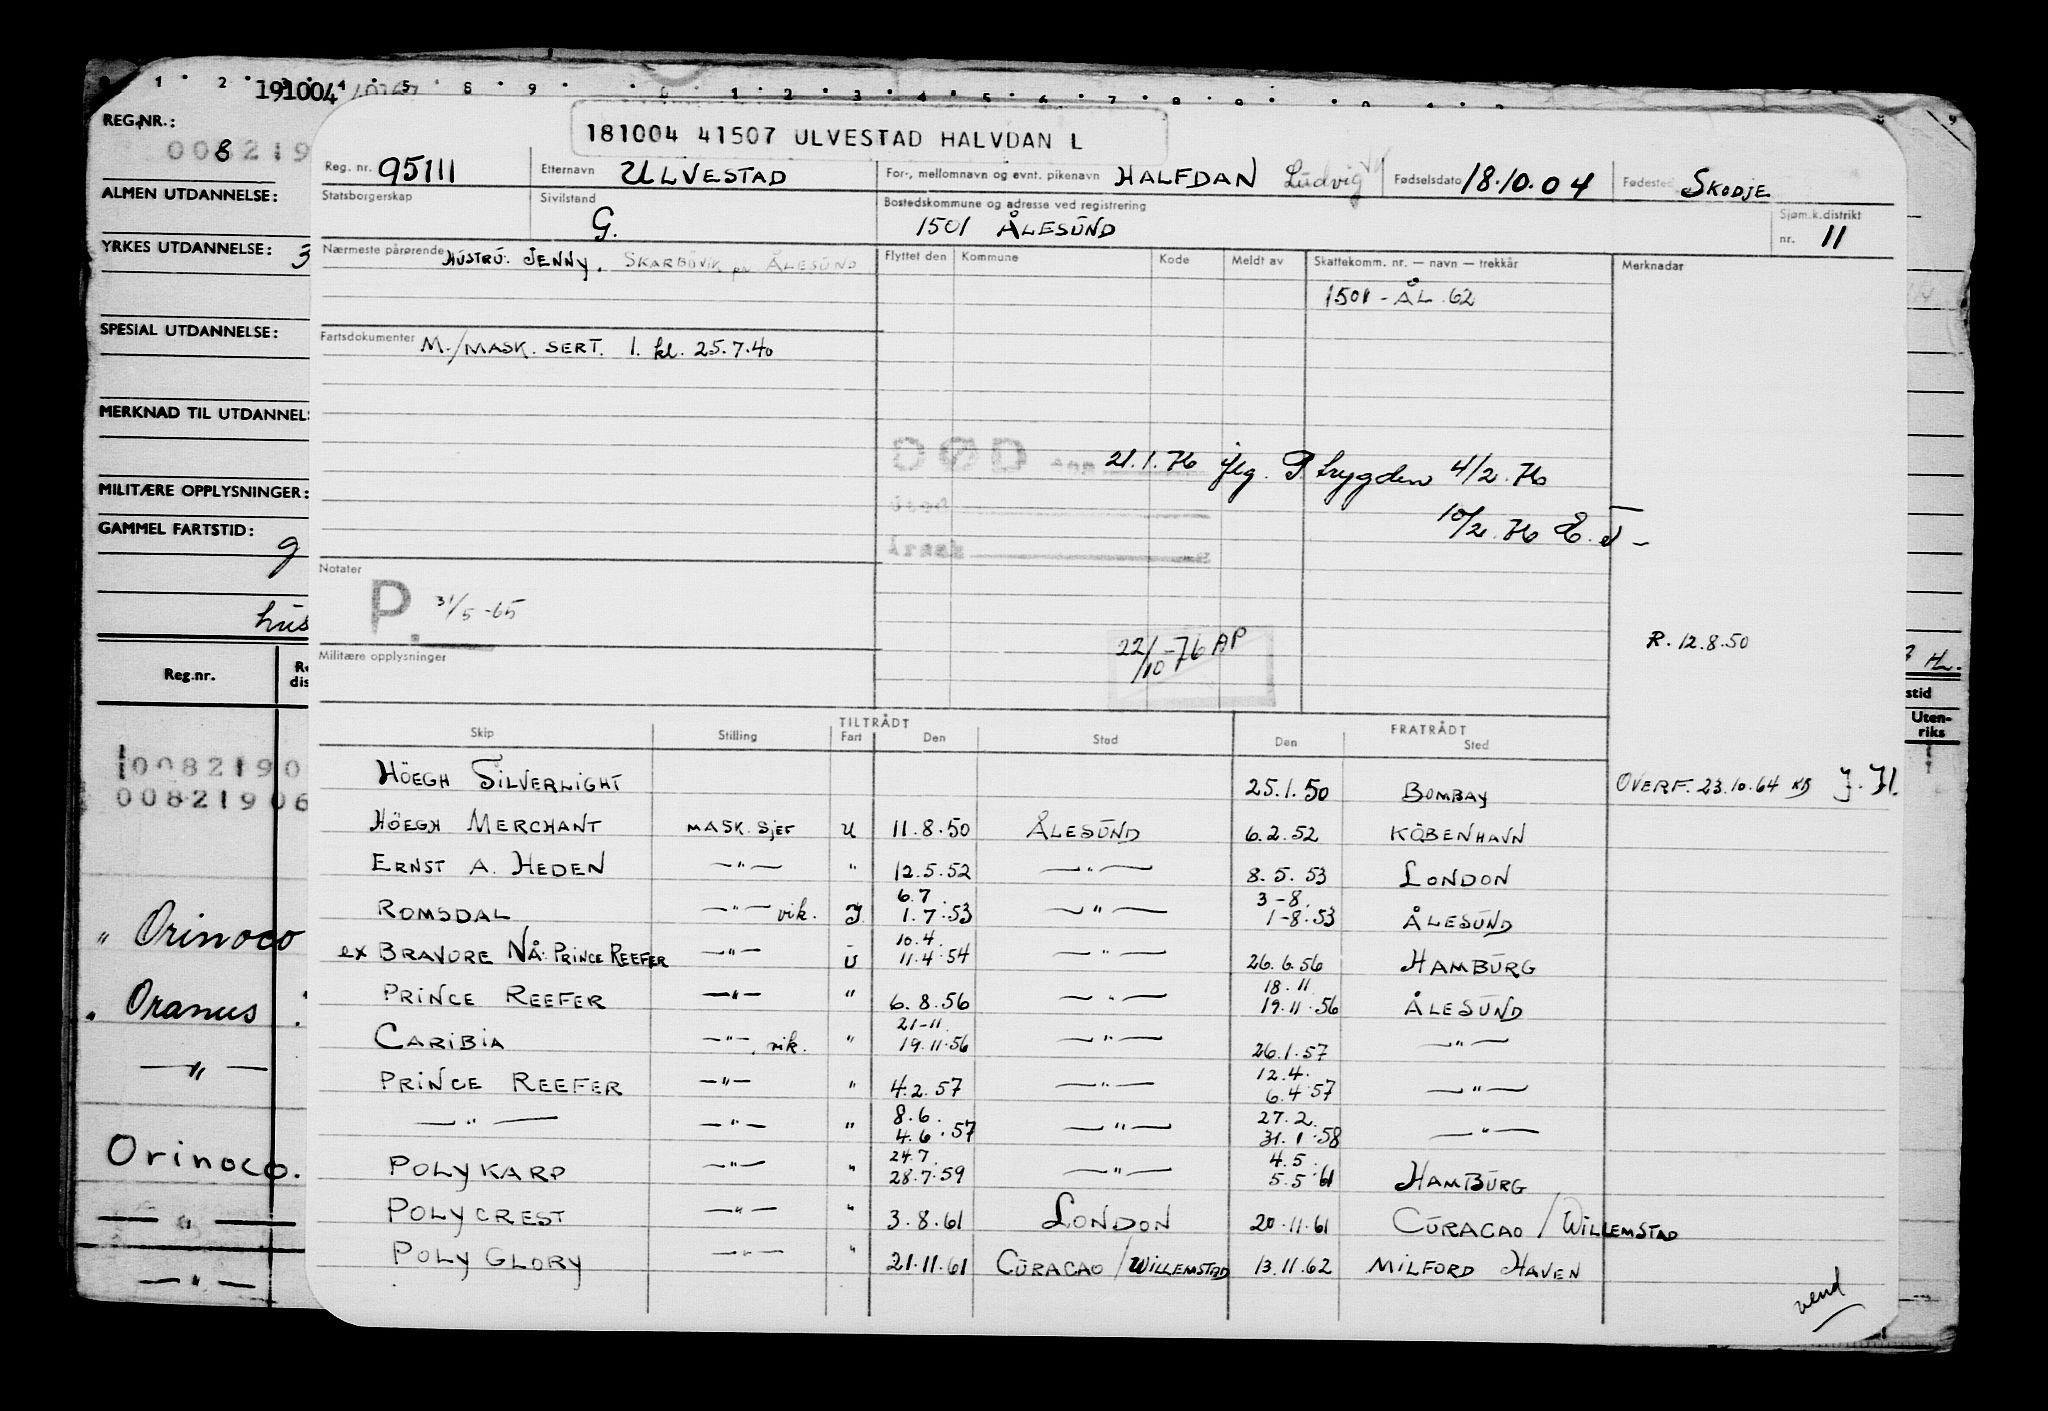 1 2 3 4 5 8 9 1 2 3 4 5 6 7 8 9
191004
REG.NR.:
008219
8
ALMEN UTDANNELSE:
YRKES UTDANNELSE: 3
SPESIAL UTDANNELSE:
MERKNAD TIL UTDANNELS
MILITÆRE OPPLYSNINGER:
GAMMEL FARTSTID:
9
hus
Reg.nr.
1008219 0
008219 06
" Orinoco
" Oranus
— " —
Orinoco.
— " —
— " —
stid
Uten-
riks
181004 41507 ULVESTAD HALVDAN L
Reg. nr. 95111 Etternavn ULVESTAD For-, mellomnavn og evnt. pikenavn HALFDAN Ludvig Fødselsdato 18.10.04 Fødested SKODJE
Statsborgerskap Sivilstand G. Bostedskommune og adresse ved registrering 1501 ÅLESUND Sjøm.k.distrikt nr. 11
Nærmeste pårørende HUSTRU: JENNY, SKARBÖVIK pr ÅLESUND Flyttet den Kommune Kode Meldt av Skattekomm. nr. — navn — trekkår Merknader
1501 - ÅL 62
Fartsdokumenter M./MASK. SERT. 1. kl. 25.7.40
DØD den 21.1.76 flg. P.trygden 4/2.76
Sted 10/2.76
Årsak
Notater
P. 31/5-65
Militære opplysninger
22/10-76 AP
R. 12.8.50
TILTRÅDT FRATRÅDT
Skip Stilling Fart Den Sted Den Sted
HÖEGH SILVERLIGHT 25.1.50 BOMBAY OVERF. 23.10.64
HÖEGH MERCHANT MASK.SJEF U 11.8.50 ÅLESUND 6.2.52 KÖBENHAVN
ERNST A. HEDEN — " — " 12.5.52 — " — 8.5.53 LONDON
6.7. 3-8.
ROMSDAL — " — vik. J. 1.7.53 — " — 1-8.53 ÅLESUND
10.4.
ex BRAVORE NÅ: PRINCE REEFER — " — U 11.4.54 — " — 26.6.56 HAMBURG
18.11
PRINCE REEFER — " — " 6.8.56 — " — 19.11.56 ÅLESUND
21-11
CARIBIA — " — vik. " 19.11.56 — " — 26.1.57 — " —
12.4.
PRINCE REEFER — " — " 4.2.57 — " — 6.4.57 — " —
8.6. 27.2.
— " — — " — " 4.6.57 — " — 31.1.58 — " —
24.7. 4.5.
POLYKARP — " — " 28.7.59 — " — 5.5.61 HAMBURG
POLYCREST — " — " 3.8.61 LONDON 20.11.61 CURACAO / WILLEMSTAD
POLY GLORY — " — " 21.11.61 CURACAO / WILLEMSTAD 13.11.62 MILFORD HAVEN
vend